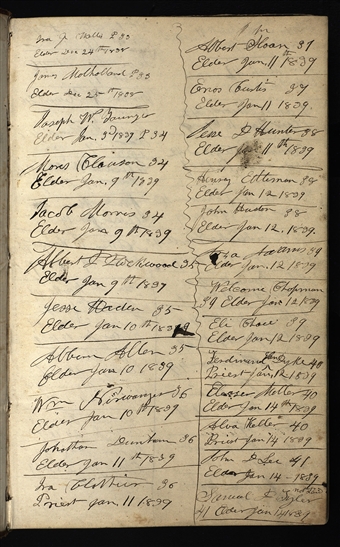 Ira J Wells P 33
Elder Dec 24th 1838
James Mulholland P 33
Elder Dec 28th 1838
Joseph W. Younger
Elder Jan. 3d 1839 P 34
Moses Clauson 34
Elder Jan. 9th 1839
Jacob Morris 34
Elder Jan 9th 1839
Albert D Lockwood 35
Elder Jan 9th 1839
Jesse Harden 35
Elder Jan 10th 1839
Albern Allen 35
Elder Jan 10 1839
Wm
36
Elder Jan 10th 1839
Johathan Dunham 36
Elder Jan 11th 1839
Ira Clothier 36
Priest Jan 11 1839
Albert Sloan 37
Elder Jan 11th 1839
Enos Curtis 37
Elder Jan 11 1839.
Jesse D Hunter 38
Elder Jan 11th 1839
Henry Etleman 38
Elder Jan 12 1839
John Huston 38
Elder Jan 12. 1839.
39
Elder Jan 12 1839
Welcome Chapman
39 Elder Jan 12 1839
Eli Chace 39
Elder Jan 12 1839
Ferdinand Van Dyke 40
Priest Jan 12 1839
Eleazer Keller 40
Elder Jan 14th 1839
Alva Keller 40
Priest Jan 14 1839
John D Lee 41
Elder Jan 14 - 1839
Samuel D Tyler
41 Elder Jan 14 1839